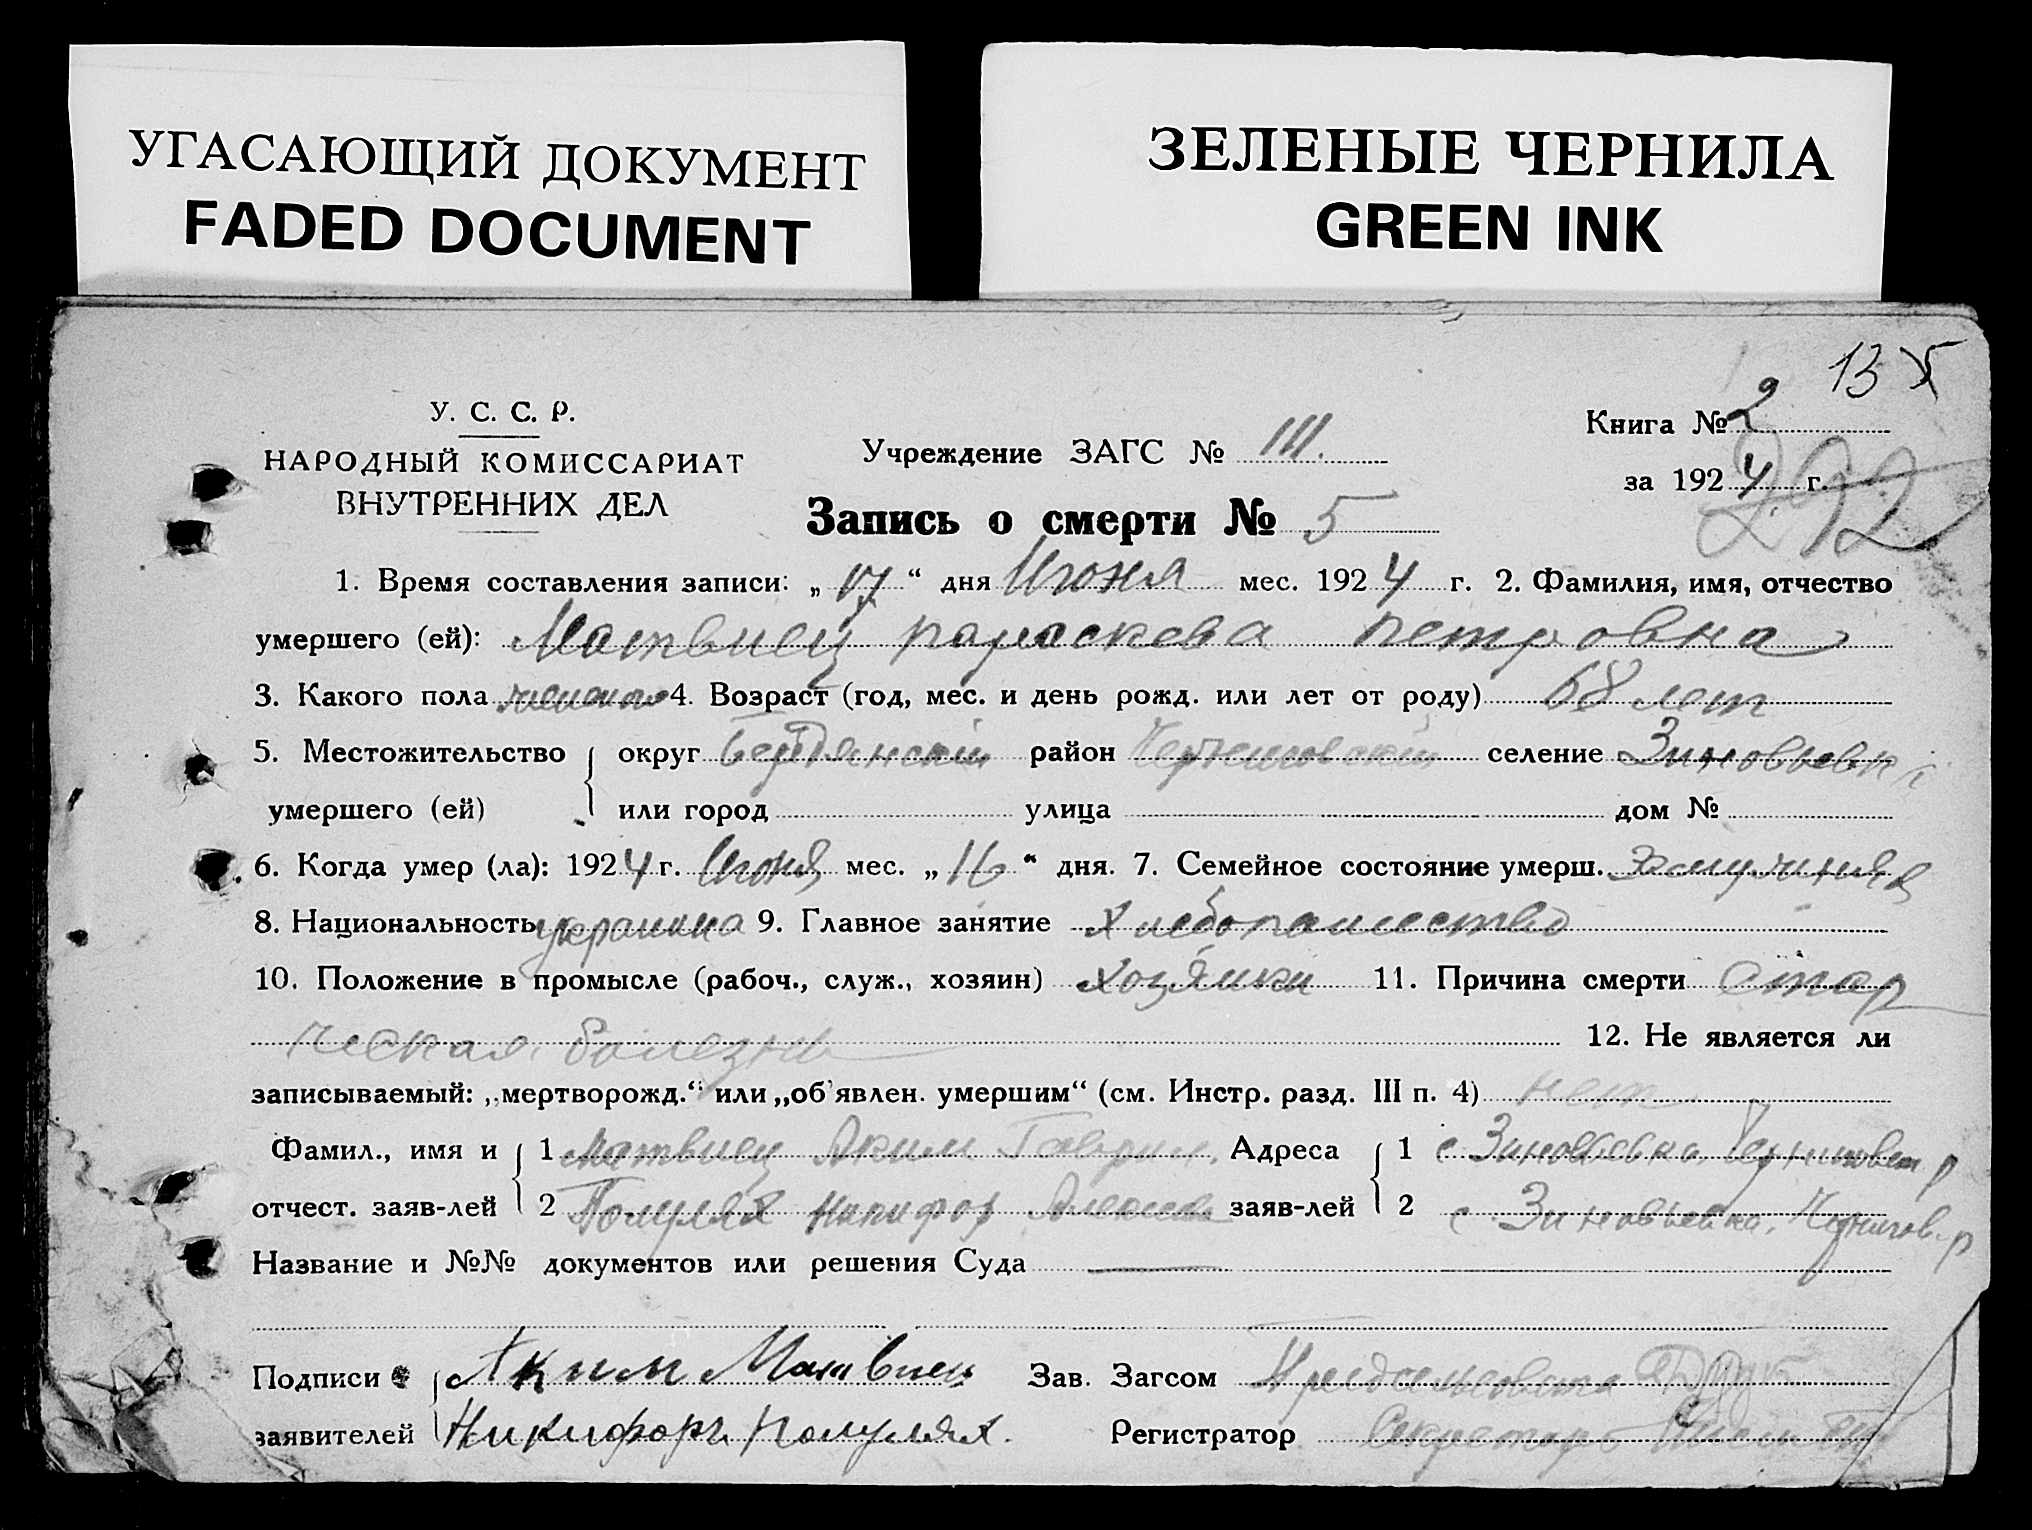 УГАСАЮЩИЙ ДОКУМЕНТ
FADED DOCUMENT
ЗЕЛЕНЫЕ ЧЕРНИЛА
GREEN INK
13
У. С. С. Р.
НАРОДНЫЙ КОМИССАРИАТ
ВНУТРЕННИХ ДЕЛ
Учреждение ЗАГС № III.
Книга № 2
за 1924 г.
292
Запись о смерти № 5
1. Время составления записи: „17“ дня Июня мес. 1924 г. 2. Фамилия, имя, отчество
умершего (ей): Матвиец Параскева Петровна
3. Какого пола 4. Возраст (год, мес. и день рожд. или лет от роду) 68 лет
5. Местожительство округ Бердянский район селение Зиновьевка
умершего (ей) или город улица дом №
6. Когда умер (ла): 1924 г. Июня мес. „16“ дня. 7. Семейное состояние умерш. замужняя
8. Национальность украинка 9. Главное занятие Хлебопашество
10. Положение в промысле (рабоч., служ., хозяин) хозяйки 11. Причина смерти Стар
ческая болезнь 12. Не является ли
записываемый: „мертворожд.“ или „об'явлен. умершим“ (см. Инстр. разд. III п. 4) нет
Фамил., имя и 1 Матвиец Аким Гаврил. Адреса 1 с Зиновьевка р
отчест. заяв-лей 2 Никифор Алексеев заяв-лей 2 с. Зиновьевка, Чернигов. р
Название и №№ документов или решения Суда —
Подписи Аким Матвиец Зав. Загсом
заявителей Никифоръ Регистратор Секретарь